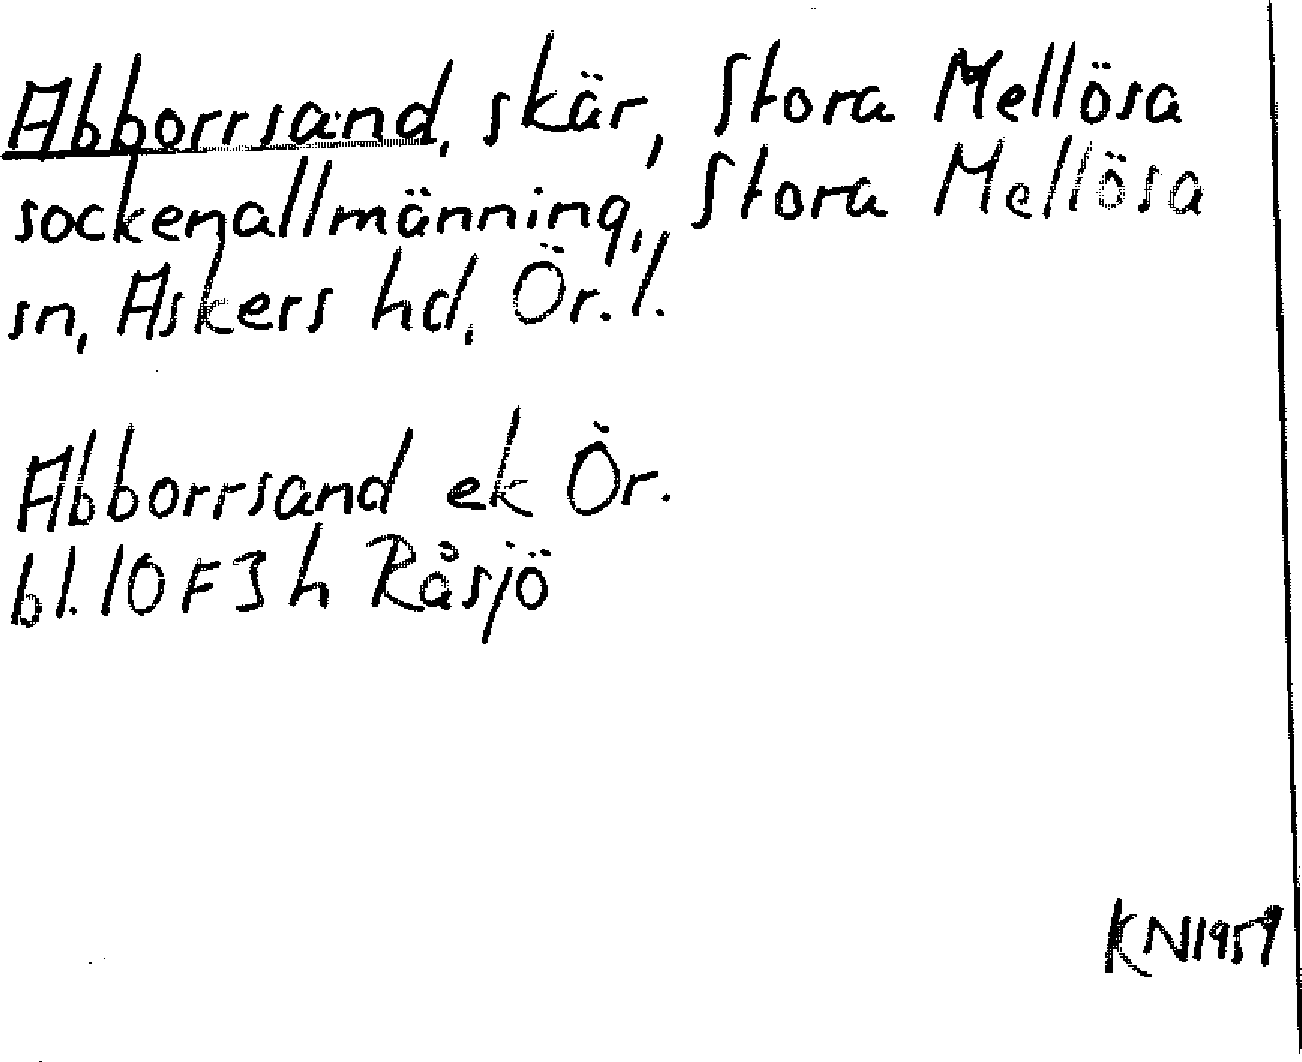 Abborrsand, skär, Stora Mellösa
sockenallmänning, Stora Mellösa
sn, Askers hd, Ör. l.
Abborrsand ek Ör.
bl. 10 F 3 h Råsjö
KN 1959